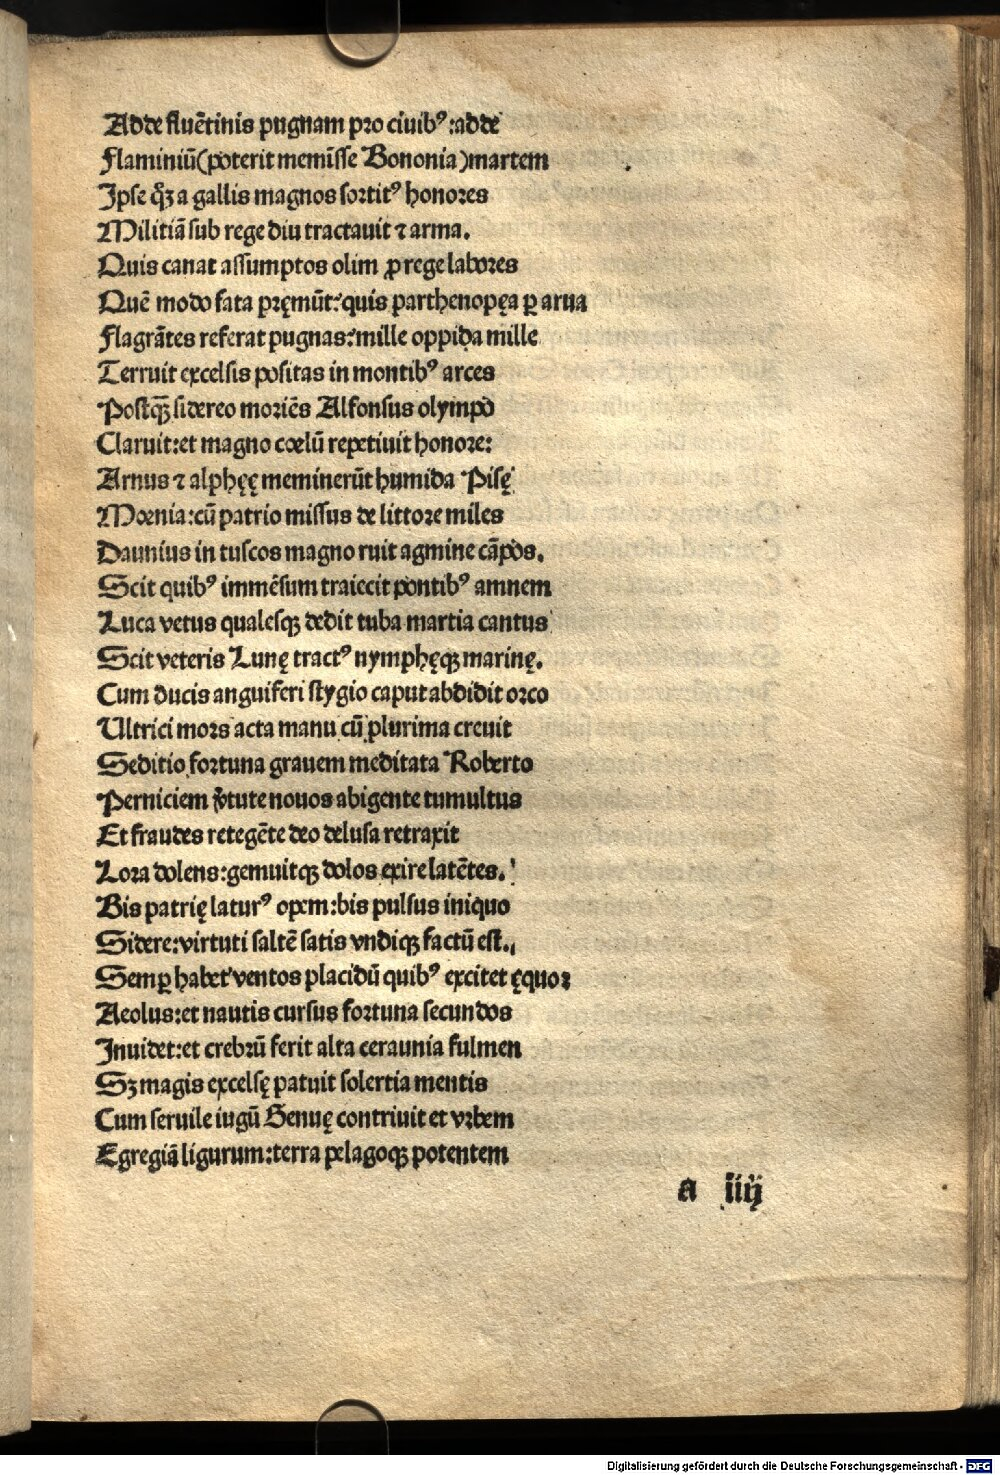 Adde fluētinis pugnam pro ciuibꝰ:adde
Flaminiū(poterit meminīsse Bononia)martem
Ipse qꝫ a gallis magnos sortitꝰ honores
Militiā sub rege diu tractauit ⁊ arma.
Quis canat assumptos olim ꝓ rege labores
Quē modo fata pręmūt:quis parthenopęa ꝑ arua
Flagrātes referat pugnas:mille oppida mille
Terruit excelsis positas in montibꝰ arces
Postqꝫ sidereo moriēs Alfonsus olympo
Claruit:et magno cœlū repetiuit honore:
Arnus ⁊ alphęę meminerūt humida Pisę
Mœnia:cū patrio missus de littore miles
Daunius in tuscos magno ruit agmine cāpos.
Scit quibꝰ immēsum traiecit pontibꝰ amnem
Luca vetus qualesqꝫ dedit tuba martia cantus
Scit veteris Lunę tractꝰ nymphęqꝫ marinę.
Cum ducis anguiferi stygio caput abdidit orco
Ultrici mors acta manu cū plurima creuit
Seditio fortuna grauem meditata Roberto
Perniciem v̓tute nouos abigente tumultus
Et fraudes retegēte deo delusa retraxit
Lora dolens:gemuitqꝫ dolos exire latētes.
Bis patrię laturꝰ opem:bis pulsus iniquo
Sidere:virtuti saltē satis vndiqꝫ factū est.
Semꝑ habet ventos placidū quibꝰ excitet ęquor
Aeolus:et nautis cursus fortuna secundos
Inuidet:et crebrū ferit alta ceraunia fulmen
Sꝫ magis excelsę patuit solertia mentis
Cum seruile iugū Genuę contriuit et vrbem
Egregiā ligurum:terra pelagoqꝫ potentem
a iiij
Digitalisierung gefördert durch die Deutsche Forschungsgemeinschaft - DFG